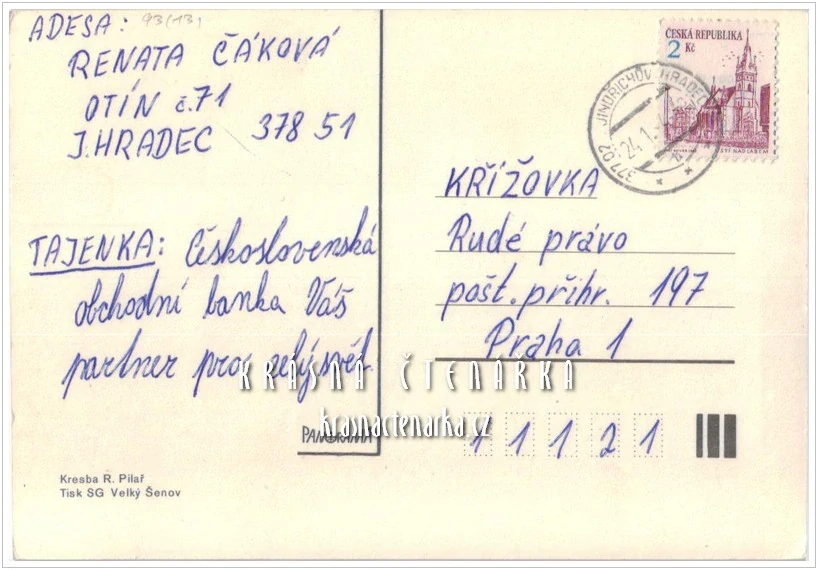 ADESA: 93/13/
RENATA ČÁKOVÁ
OTÍN č.71
J.HRADEC 378 51
TAJENKA: Československá
obchodní banka Váš
partner pro celý svět.
ČESKÁ REPUBLIKA
2 Kč
JINDŘICHŮV HRADEC
24.1.
377 02
ÚSTÍ NAD LABEM
KŘÍŽOVKA
Rudé právo
pošt. přihr. 197
Praha 1
11121
KRÁSNÁ ČTENÁŘKA
krasnactenarka.cz
PANORAMA
Kresba R. Pilař
Tisk SG Velký Šenov